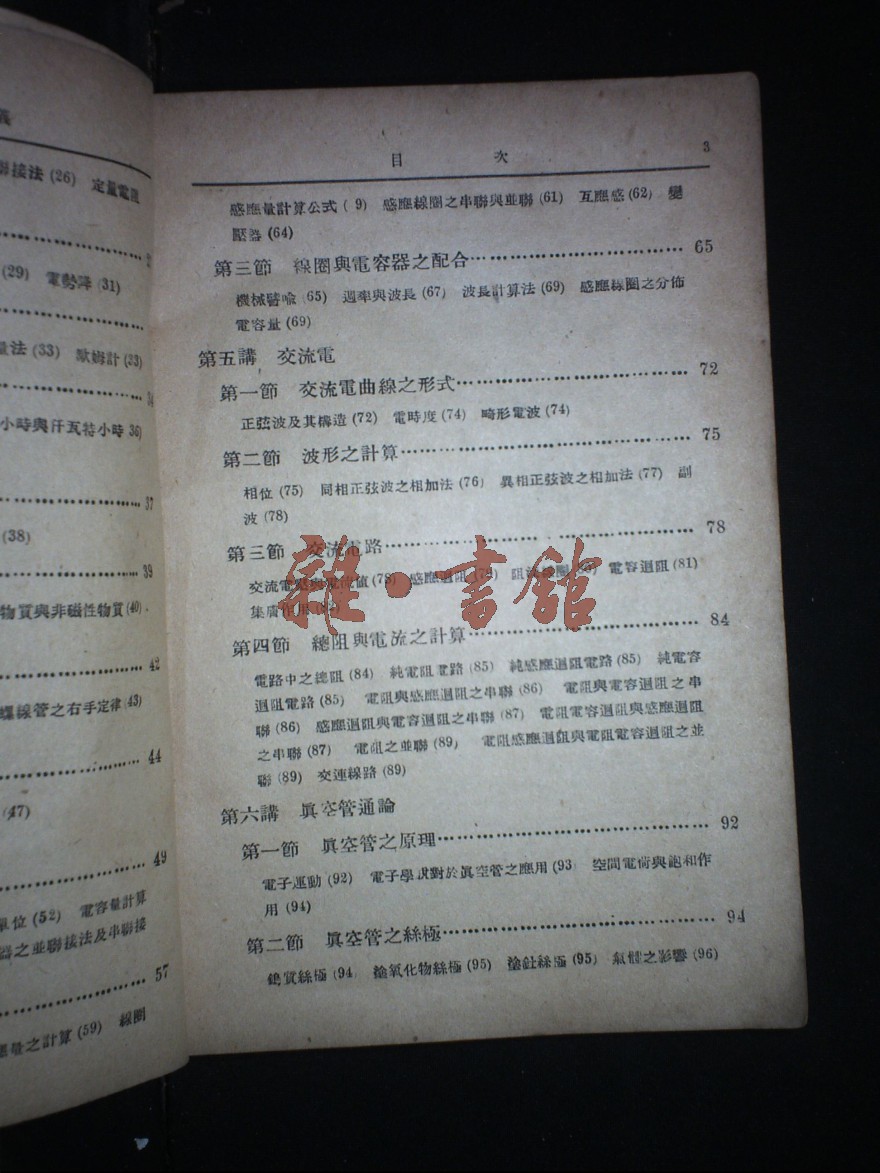 義
聯接法 (26) 定量電阻
(29) 電勢降 (31)
量法 (33) 歐姆計 (33)
34
小時與仟瓦特小時 36)
37
(38)
39
物質與非磁性物質 (40)
42
螺線管之右手定律 (43)
44
(47)
49
單位 (52) 電容量計算
器之並聯接法及串聯接
57
應量之計算 (59) 線圈
目 次 3
感應量計算公式 ( 9) 感應線圈之串聯與並聯 (61) 互應感 (62) 變
壓器 (64)
第三節 線圈與電容器之配合 65
機械譬喻 (65) 週率與波長 (67) 波長計算法 (69) 感應線圈之分佈
電容量 (69)
第五講 交流電
第一節 交流電曲線之形式 72
正弦波及其構造 (72) 電時度 (74) 畸形電波 (74)
第二節 波形之計算 75
相位 (75) 同相正弦波之相加法 (76) 異相正弦波之相加法 (77) 副
波 (78)
第三節 交流電路 78
交流電壓與電流值 (78) 感應迴阻 (79) 阻流線圈 (80) 電容迴阻 (81)
集膚作用
第四節 總阻與電流之計算 84
電路中之總阻 (84) 純電阻電路 (85) 純感應迴阻電路 (85) 純電容
迴阻電路 (85) 電阻與感應迴阻之串聯 (86) 電阻與電容迴阻之串
聯 (86) 感應迴阻與電容迴阻之串聯 (87) 電阻電容迴阻與感應迴阻
之串聯 (87) 電阻之並聯 (89) 電阻感應迴阻與電阻電容迴阻之並
聯 (89) 交連線路 (89)
第六講 眞空管通論
第一節 眞空管之原理 92
電子運動 (92) 電子學說對於眞空管之應用 (93) 空間電荷與飽和作
用 (94)
第二節 眞空管之絲極 94
鎢質絲極 (94) 塗氧化物絲極 (95) 塗釷絲極 (95) 氣體之影響 (96)
雜·書館